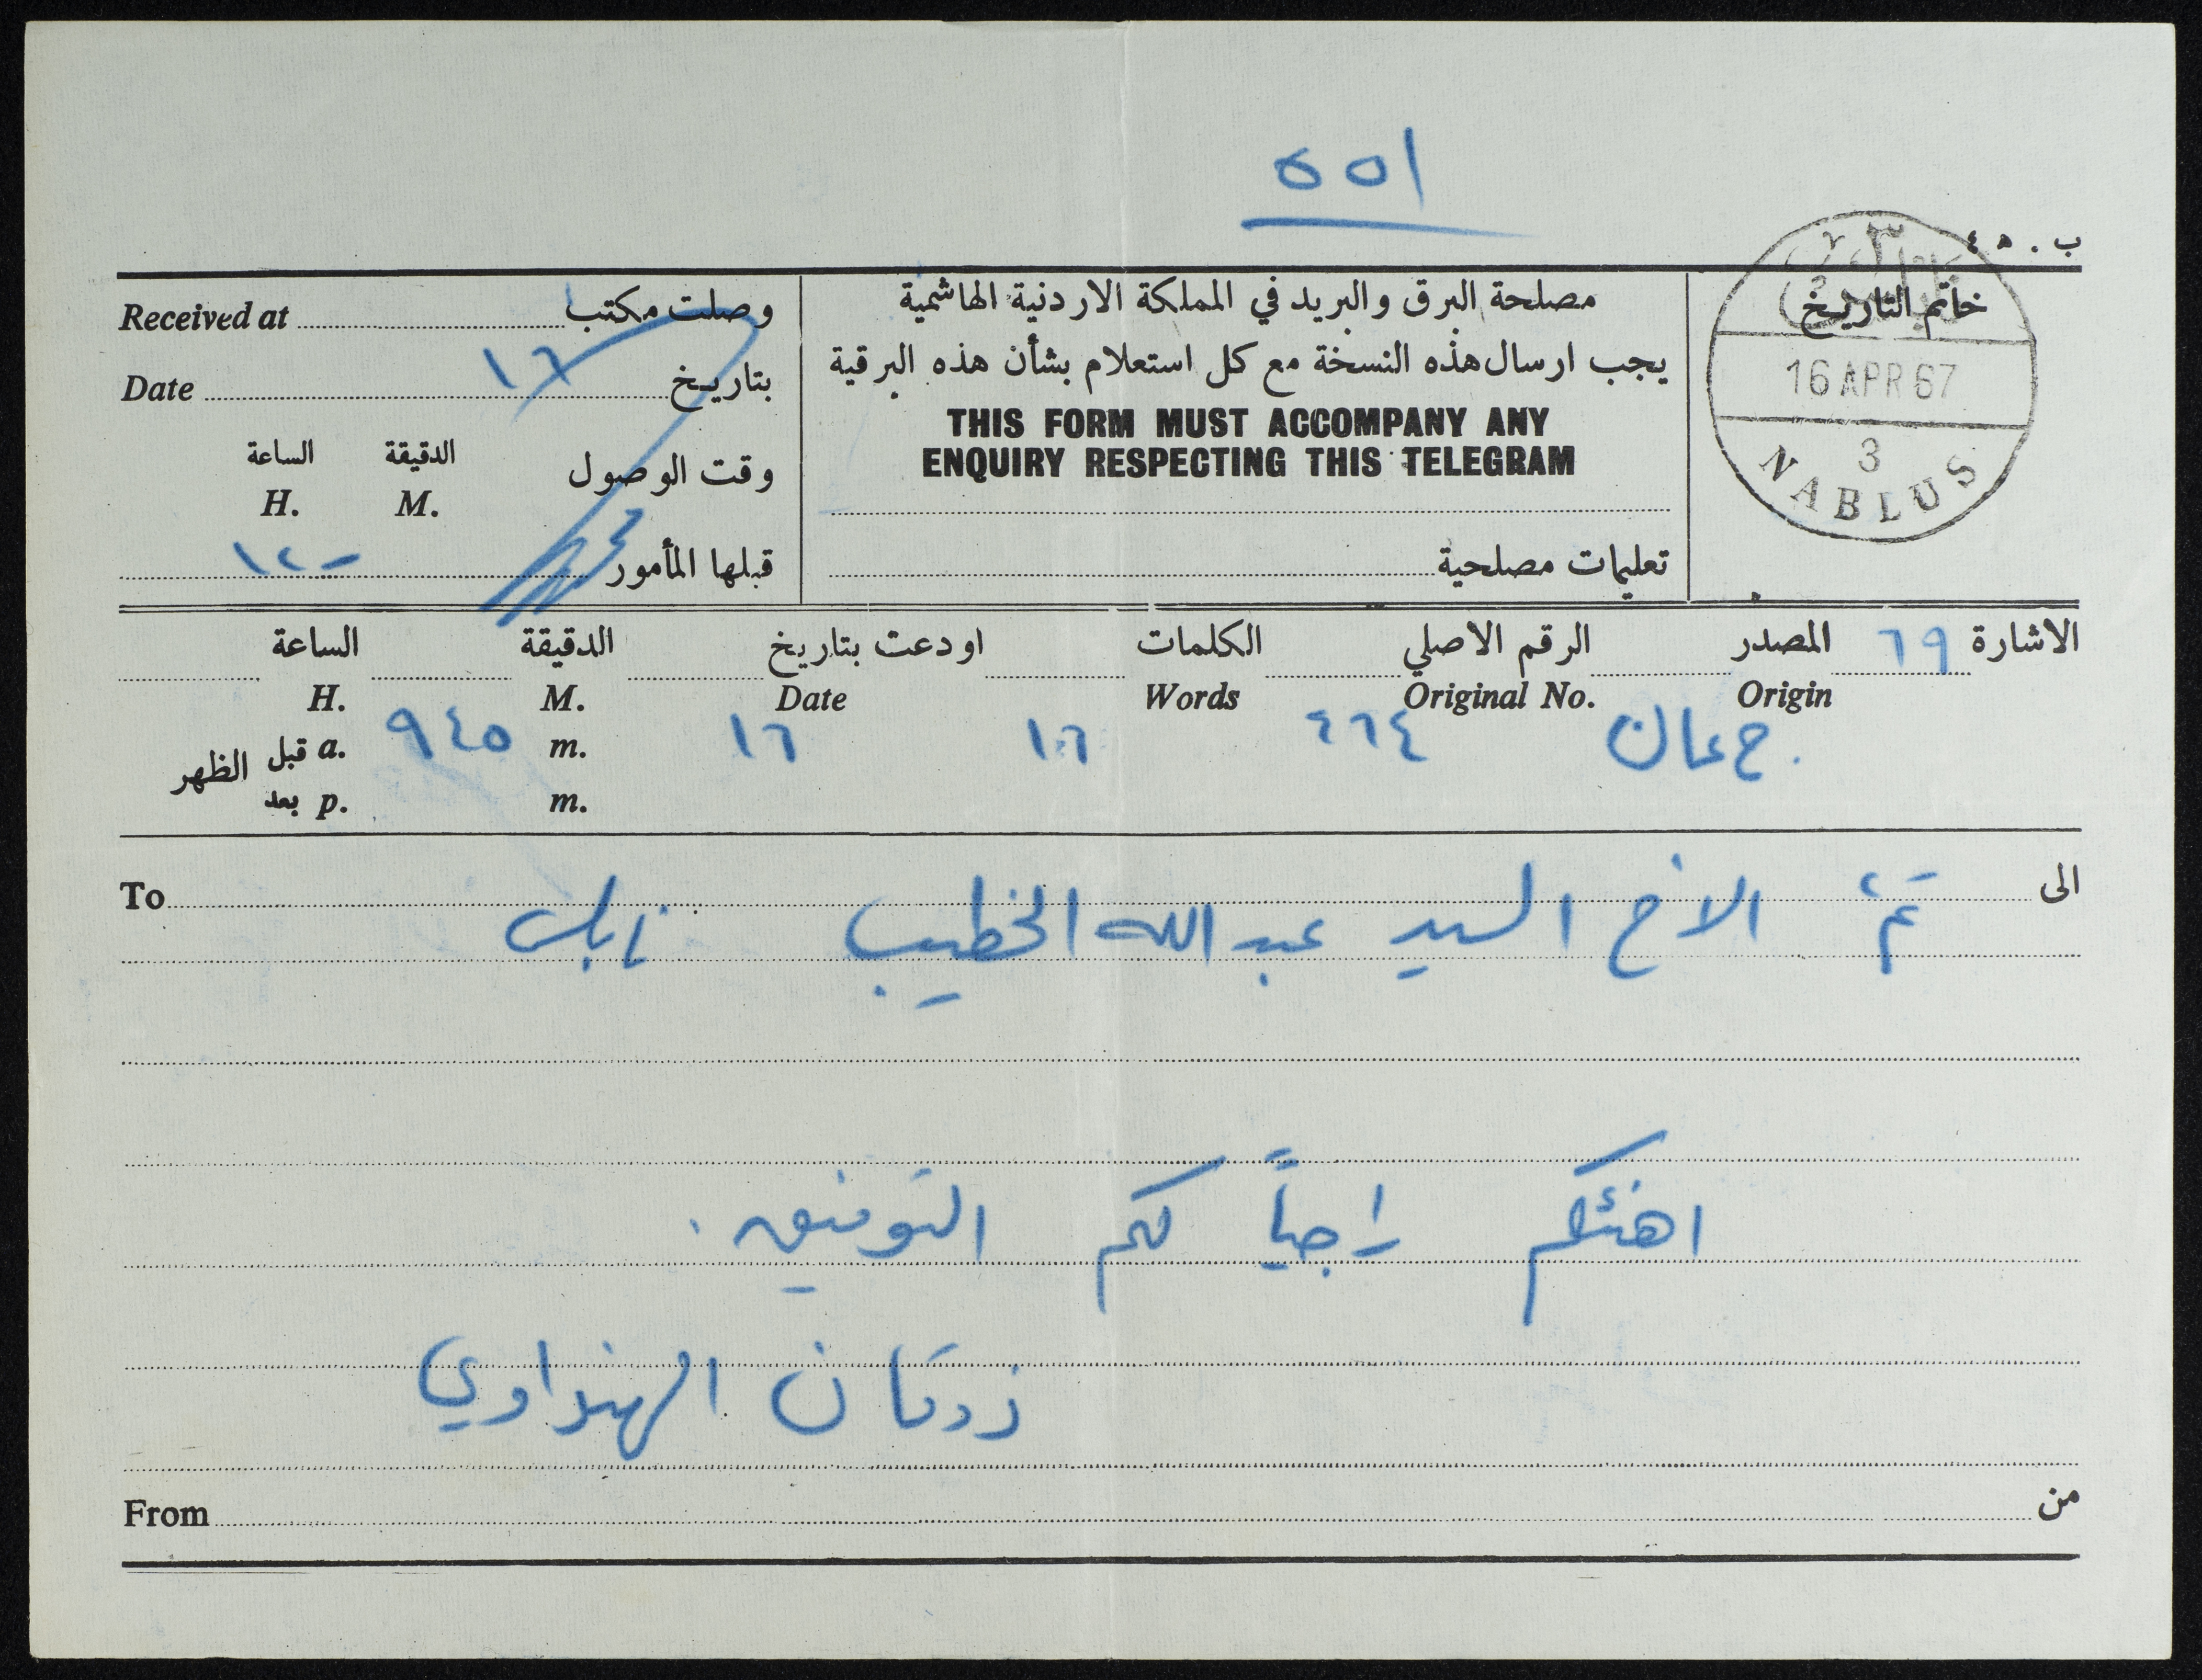 ٥٥١
ب . ٤٥
وصلت مكتب Received at
بتاريخ ١٦ Date
الدقيقة الساعة
وقت الوصول M. H.
قبلها المأمور ١٢-
مصلحة البرق والبريد في المملكة الاردنية الهاشمية
يجب ارسال هذه النسخة مع كل استعلام بشأن هذه البرقية
THIS FORM MUST ACCOMPANY ANY
ENQUIRY RESPECTING THIS TELEGRAM
تعليمات مصلحية
خاتم التاريخ
16 APR 67
3
NABLUS
الاشارة ٦٩ المصدر الرقم الاصلي الكلمات اودعت بتاريخ الدقيقة الساعة
Origin Original No. Words Date M. H.
ج عمان ٤٦٤ ١٦ ١٦ m. ٩٤٥ a. قبل الظهر
m. p. بعد
الى الاخ السيد عبد الله الخطيب نابلس To
اهنئكم راجياً لكم التوفيق .
ذوقان الهنداوي
من From